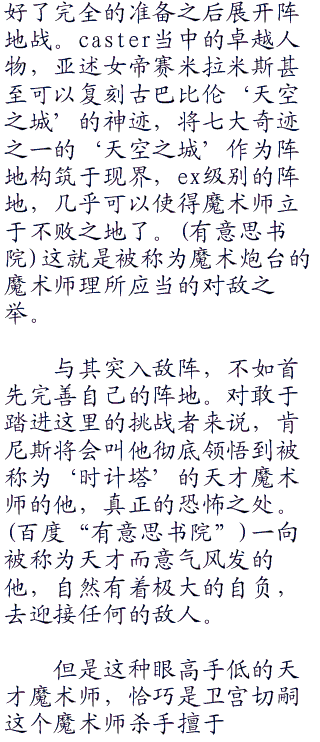 好了完全的准备之后展开阵
地战。caster当中的卓越人
物，亚述女帝赛米拉米斯甚
至可以复刻古巴比伦‘天空
之城’的神迹，将七大奇迹
之一的‘天空之城’作为阵
地构筑于现界，ex级别的阵
地，几乎可以使得魔术师立
于不败之地了。(有意思书
院)这就是被称为魔术炮台的
魔术师理所应当的对敌之
举。
与其突入敌阵，不如首
先完善自己的阵地。对敢于
踏进这里的挑战者来说，肯
尼斯将会叫他彻底领悟到被
称为‘时计塔’的天才魔术
师的他，真正的恐怖之处。
(百度“有意思书院”)一向
被称为天才而意气风发的
他，自然有着极大的自负，
去迎接任何的敌人。
但是这种眼高手低的天
才魔术师，恰巧是卫宫切嗣
这个魔术师杀手擅于